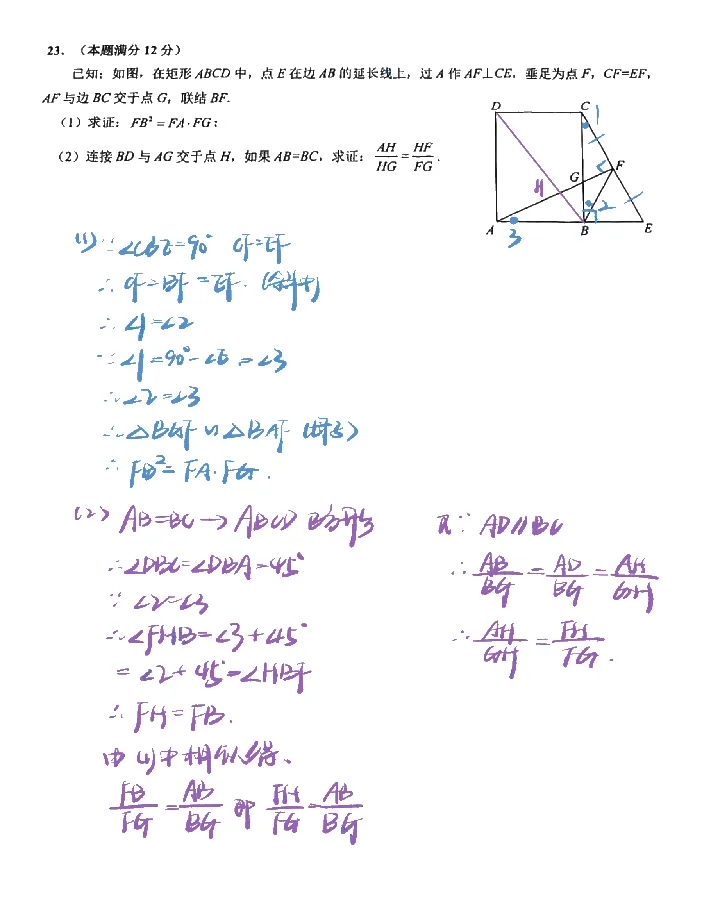 23. (本题满分 12 分)
已知:如图,在矩形 ABCD 中,点 E 在边 AB 的延长线上,过 A 作 AF⊥CE,垂足为点 F,CF=EF,
AF 与边 BC 交于点 G,联结 BF.
(1)求证:FB² = FA·FG;
(2)连接 BD 与 AG 交于点 H,如果 AB=BC,求证:AH/HG = HF/FG.
D C 1
F
G
H
2
A 3 B E
(1) ∵ ∠CBE=90° CF=EF
∴ CF=BF=EF.
∴ ∠1=∠2
∵ ∠1=90°-∠E=∠3
∴ ∠2=∠3
∴ △BGF∽△BAF
∴ FB²=FA·FG.
(2) AB=BC → ABCD 正方形
∴ ∠DBC=∠DBA=45°
∵ ∠2=∠3
∴ ∠FHB=∠3+45°
=∠2+45°=∠HBF
∴ FH=FB.
由(1)中相似得、
FB/FG = AB/BG 即 FH/FG = AB/BG
又∵ AD∥BC
∴ AB/BG = AD/BG = AH/GH
∴ AH/GH = FH/FG.